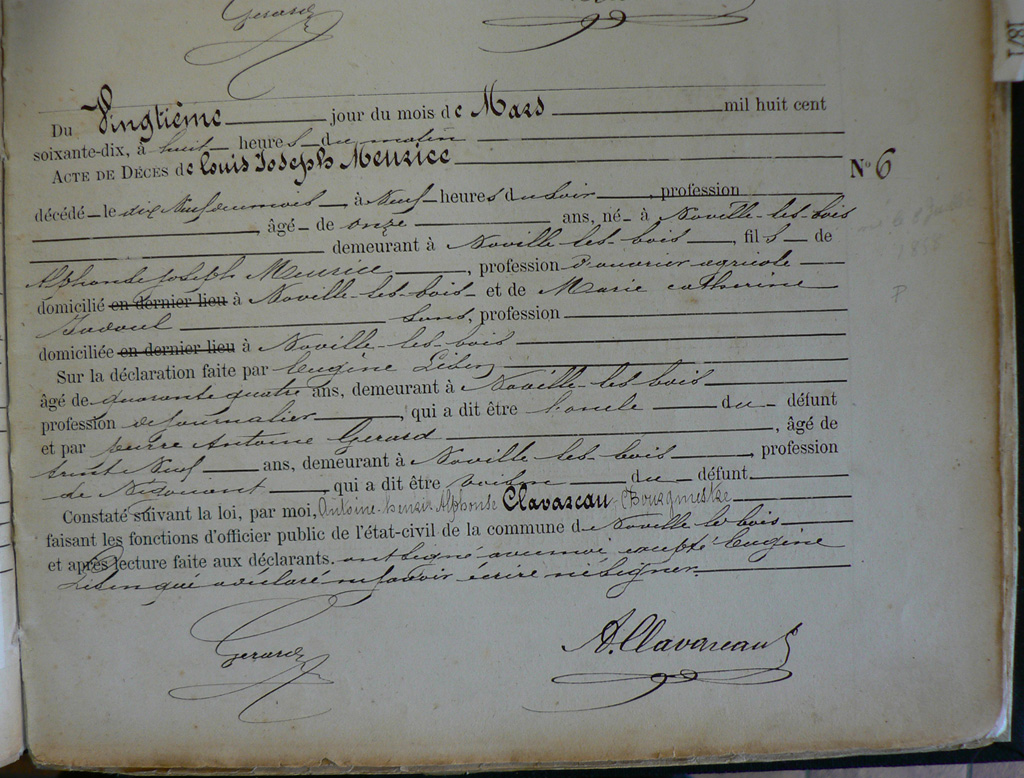 Gerard
1871
Du Vingtième jour du mois de Mars mil huit cent
soixante-dix, à huit heures du matin
ACTE DE DÉCÈS de Louis Joseph Meurice
N° 6
décédé le dix Neuf du mois, à Neuf heures du soir, profession
, âgé de onze ans, né à Noville-les-bois
demeurant à Noville-les-bois, fils de
Alphonse Joseph Meurice, profession d'ouvrier agricole
domicilié en dernier lieu à Noville-les-bois et de Marie Catherine
sans, profession
domiciliée en dernier lieu à Noville-les-bois
Sur la déclaration faite par Eugène Libin
âgé de quarante quatre ans, demeurant à Noville-les-bois
profession de journalier, qui a dit être l'oncle du défunt
et par pierre Antoine Gerard, âgé de
trente Neuf ans, demeurant à Noville-les-bois, profession
de, qui a dit être voisin du défunt.
Constaté suivant la loi, par moi, Antoine-henri-Alphonse Clavareau, Bourgmestre
faisant les fonctions d'officier public de l'état-civil de la commune d. Noville les bois
et après lecture faite aux déclarants. ont signé avec moi excepté Eugène
Libin qui a déclaré ne savoir écrire ni signer.
Gerard
A. Clavareau